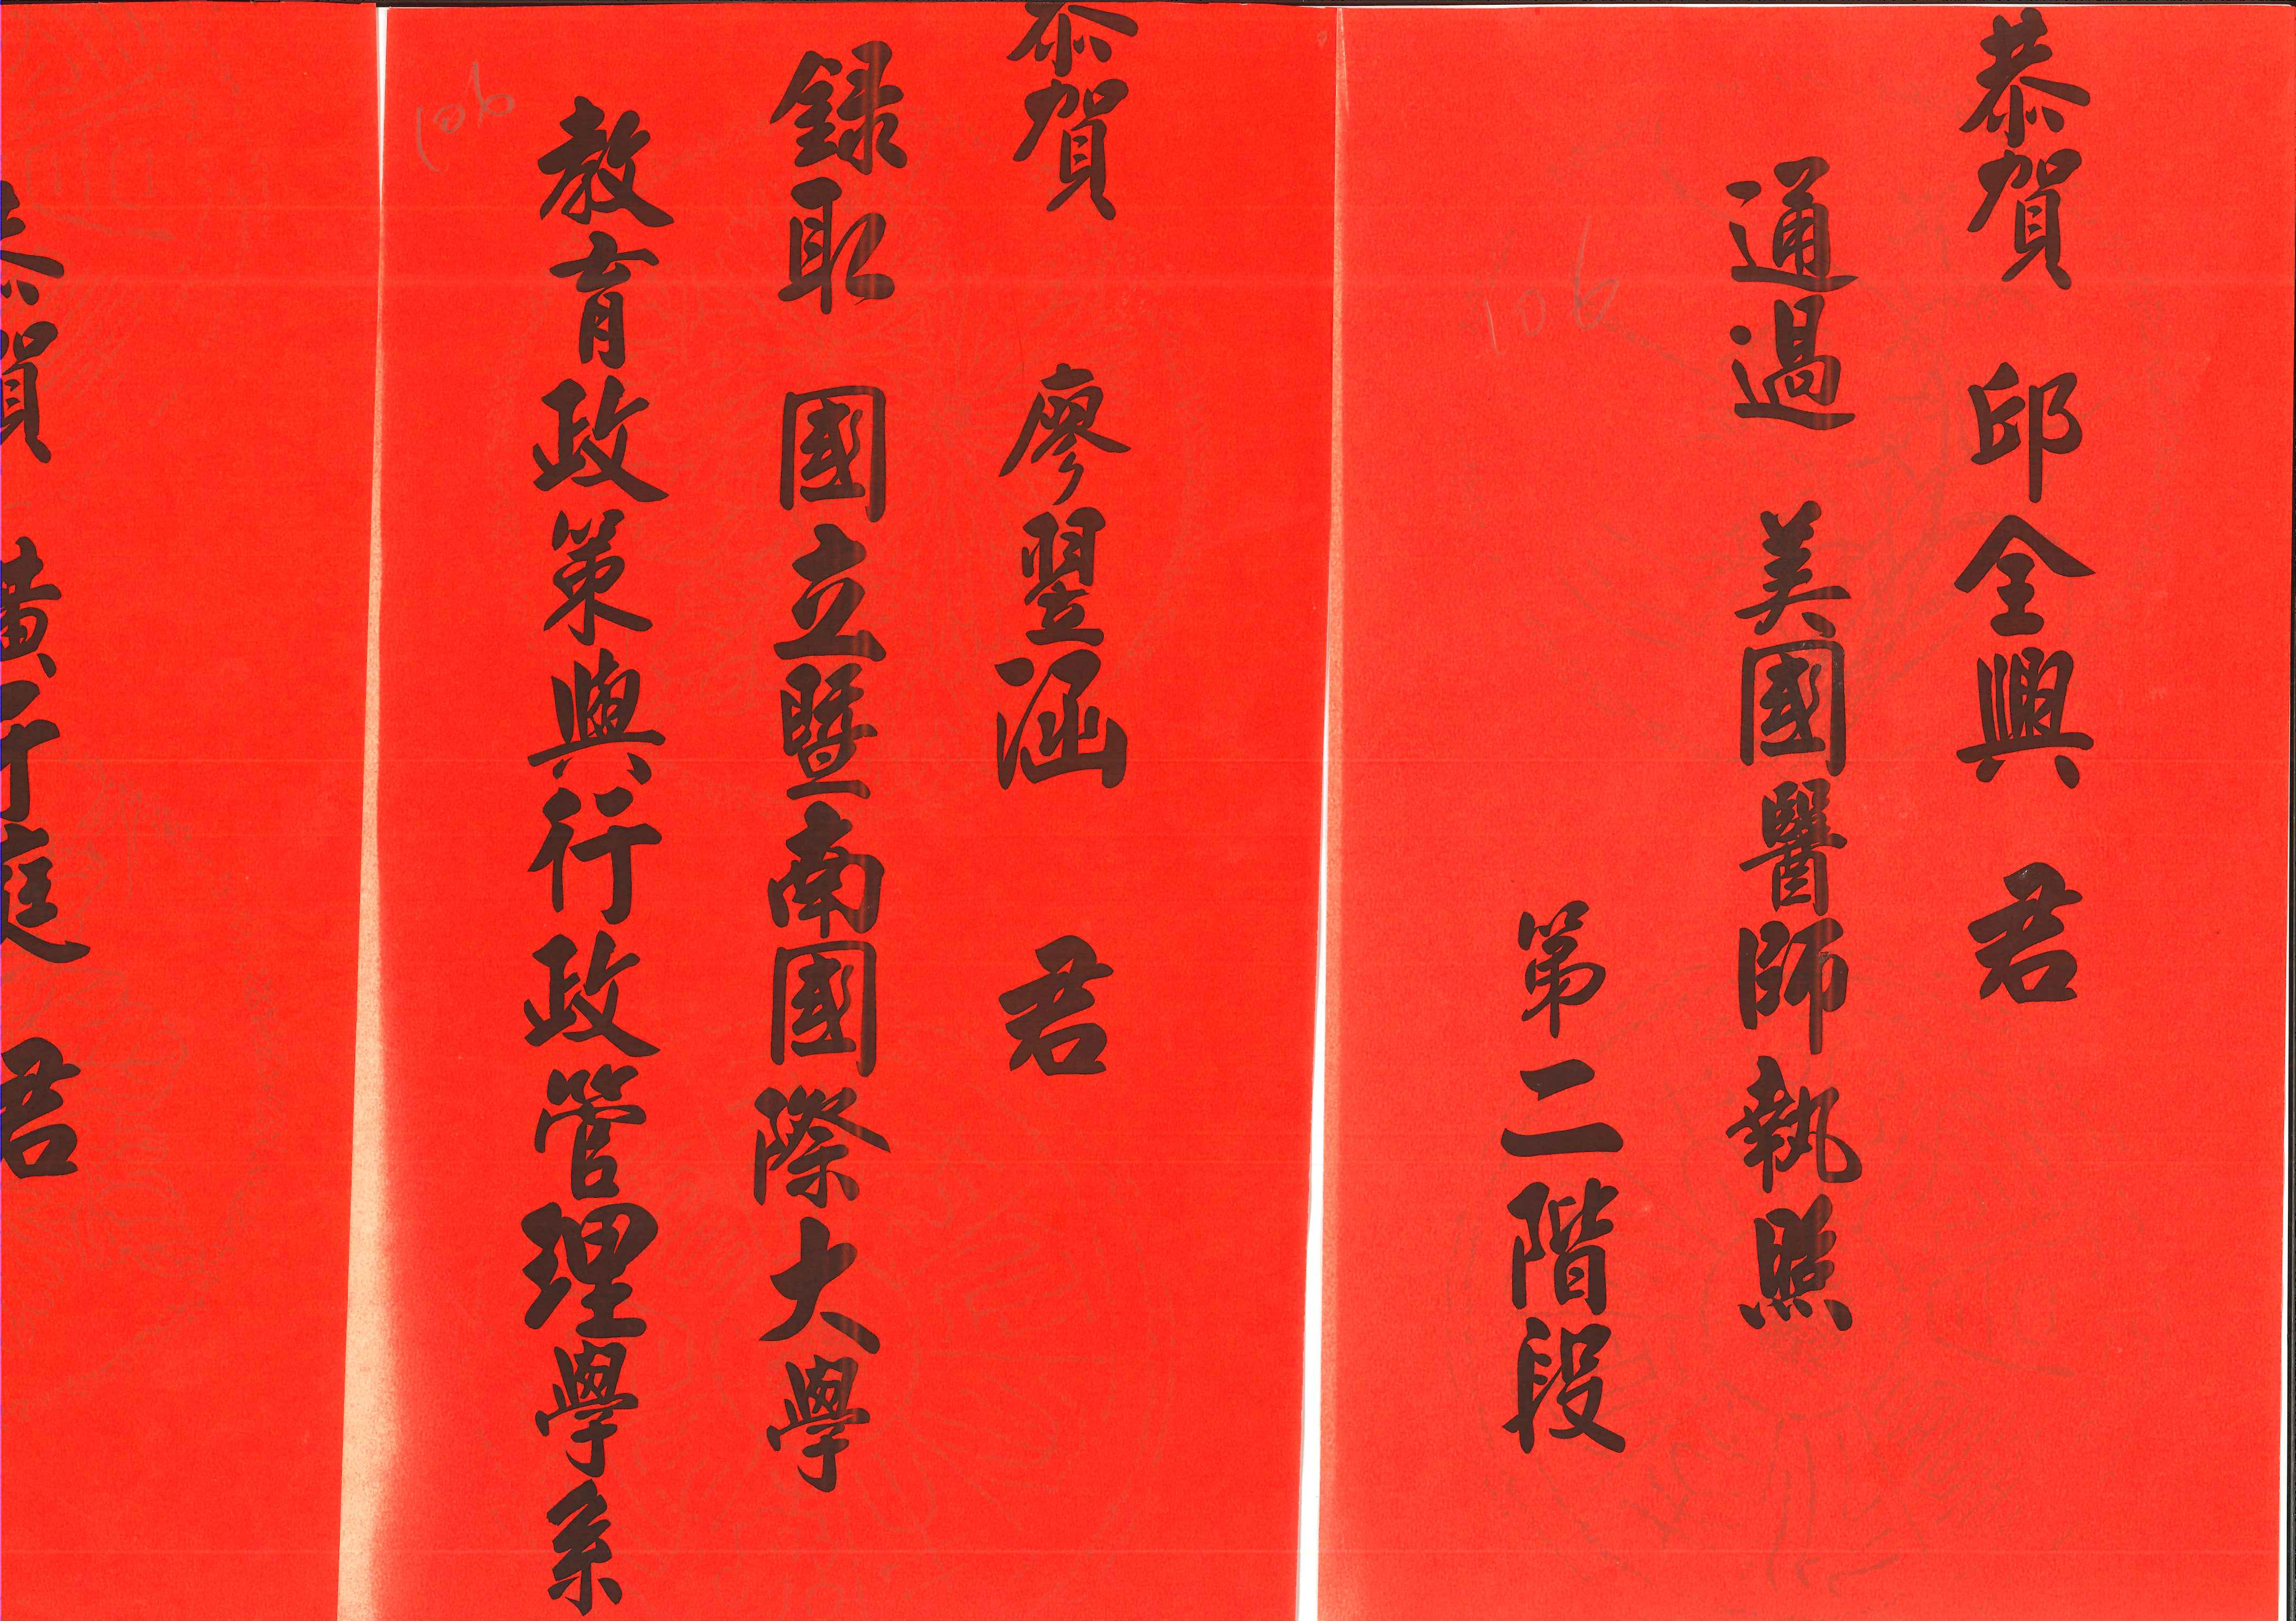 恭賀 邱全興 君
通過 美國醫師執照
第二階段
106
恭賀 廖翌涵 君
錄取 國立暨南國際大學
教育政策與行政管理學系
106
恭賀 黃 庭 君